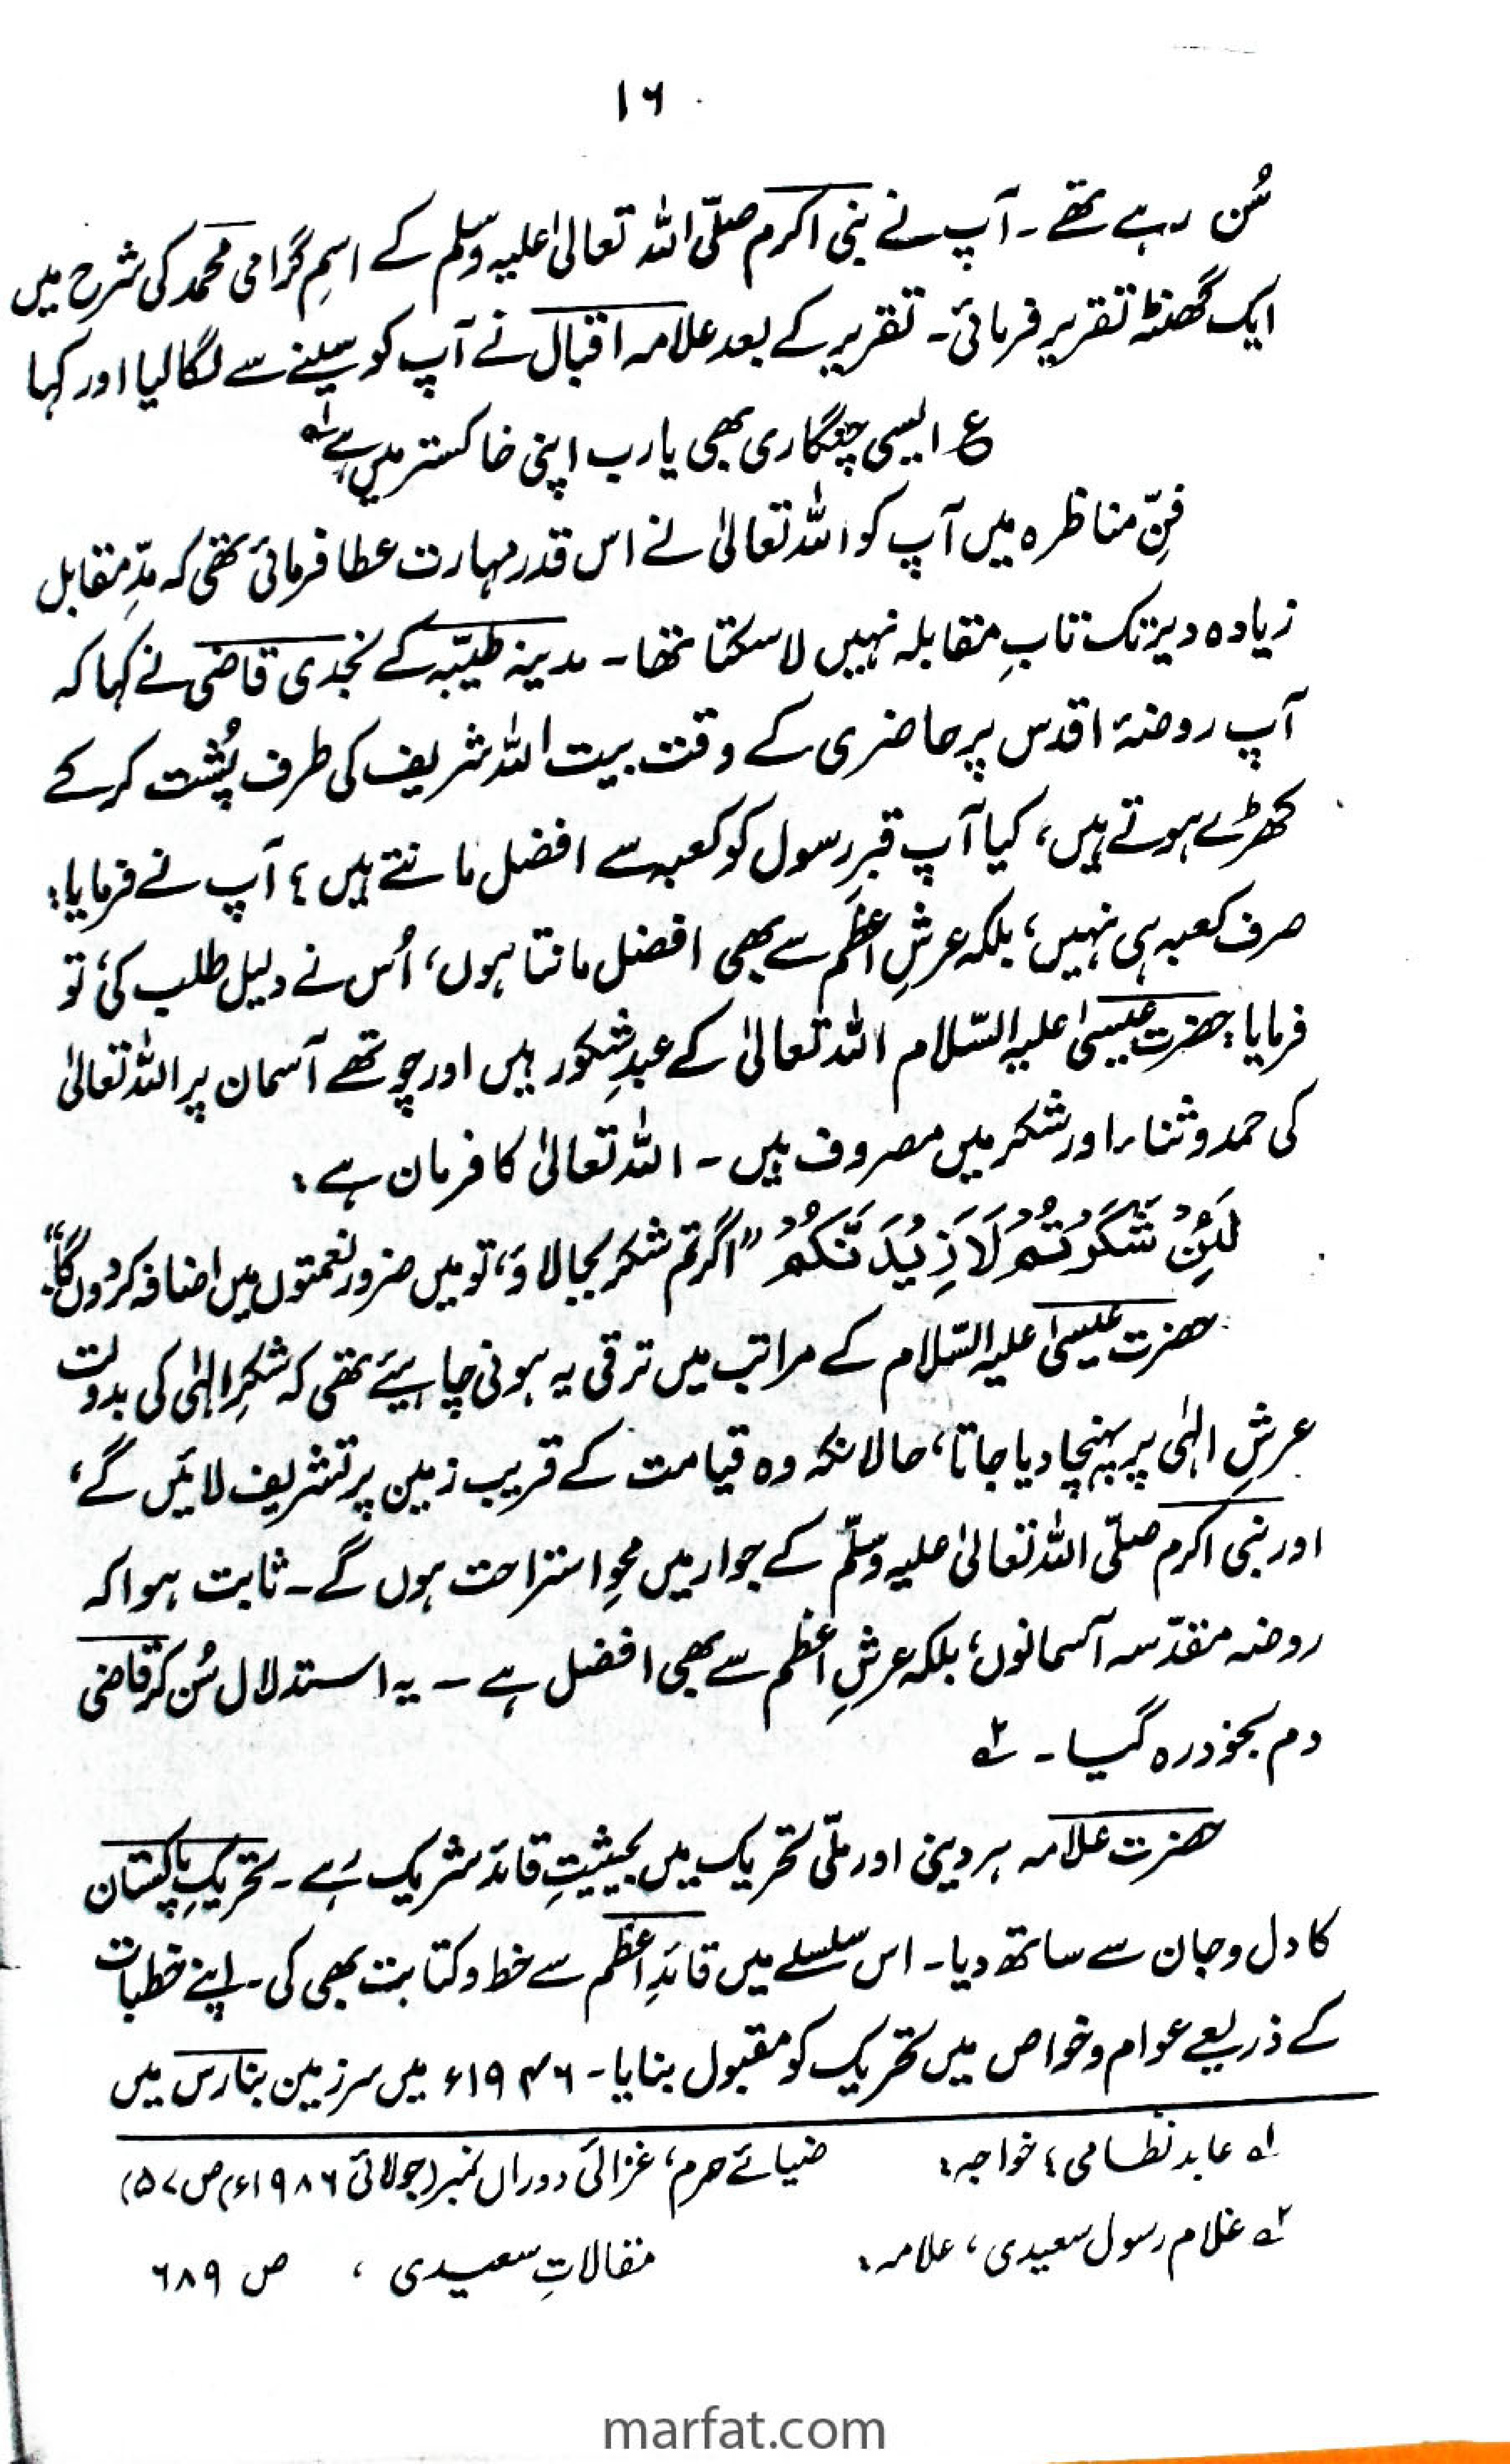 ۱۶
سُن رہے تھے ۔ آپ نے نبی اکرم صلّی اللہ تعالیٰ علیہ وسلم کے اسمِ گرامی محمد کی شرح میں
ایک گھنٹہ تقریر فرمائی ۔ تقریر کے بعد علامہ اقبال نے آپ کو سینے سے لگا لیا اور کہا
ع ایسی چنگاری بھی یارب اپنی خاکستر میں ہے ؎۱
فنِّ مناظرہ میں آپ کو اللہ تعالیٰ نے اس قدر مہارت عطا فرمائی تھی کہ مدِّ مقابل
زیادہ دیر تک تابِ مقابلہ نہیں لا سکتا تھا ۔ مدینہ طیّبہ کے نجدی قاضی نے کہا کہ
آپ روضۂ اقدس پر حاضری کے وقت بیت اللہ شریف کی طرف پُشت کر کے
کھڑے ہوتے ہیں، کیا آپ قبرِ رسول کو کعبہ سے افضل مانتے ہیں ؟ آپ نے فرمایا :
صرف کعبہ ہی نہیں، بلکہ عرشِ اعظم سے بھی افضل مانتا ہوں، اُس نے دلیل طلب کی، تو
فرمایا : حضرت عیسیٰ علیہ السّلام اللہ تعالیٰ کے عبدِ شکور ہیں اور چوتھے آسمان پر اللہ تعالیٰ
کی حمد و ثناء اور شکر میں مصروف ہیں ۔ اللہ تعالیٰ کا فرمان ہے :
لَئِنْ شَكَرْتُمْ لَاَزِيْدَنَّكُمْ "اگر تم شکر بجا لاؤ، تو میں ضرور نعمتوں میں اضافہ کردوں گا۔"
حضرت عیسیٰ علیہ السّلام کے مراتب میں ترقی یہ ہونی چاہیئے تھی کہ شکرِ الٰہی کی بدولت
عرشِ الٰہی پر پہنچا دیا جاتا، حالانکہ وہ قیامت کے قریب زمین پر تشریف لائیں گے،
اور نبی اکرم صلّی اللہ تعالیٰ علیہ وسلّم کے جوار میں محوِ استراحت ہوں گے ۔ ثابت ہوا کہ
روضہ مقدّسہ آسمانوں، بلکہ عرشِ اعظم سے بھی افضل ہے ۔ یہ استدلال سُن کر قاضی
دم بخود رہ گیا ۔ ؎۲
حضرت علامہ ہر دینی اور ملّی تحریک میں بحیثیتِ قائد شریک رہے ۔ تحریکِ پاکستان
کا دل و جان سے ساتھ دیا ۔ اس سلسلے میں قائدِ اعظم سے خط و کتابت بھی کی ۔ اپنے خطبات
کے ذریعے عوام و خواص میں تحریک کو مقبول بنایا ۔ ۱۹۴۶ء میں سرزمین بنارس میں
؎۱ عابد نظامی، خواجہ : ضیائے حرم، غزالیٔ دوراں نمبر (جولائی ۱۹۸۶ء) ص ۵۷)
؎۲ غلام رسول سعیدی، علامہ : مقالاتِ سعیدی ، ص ۶۸۹
marfat.com